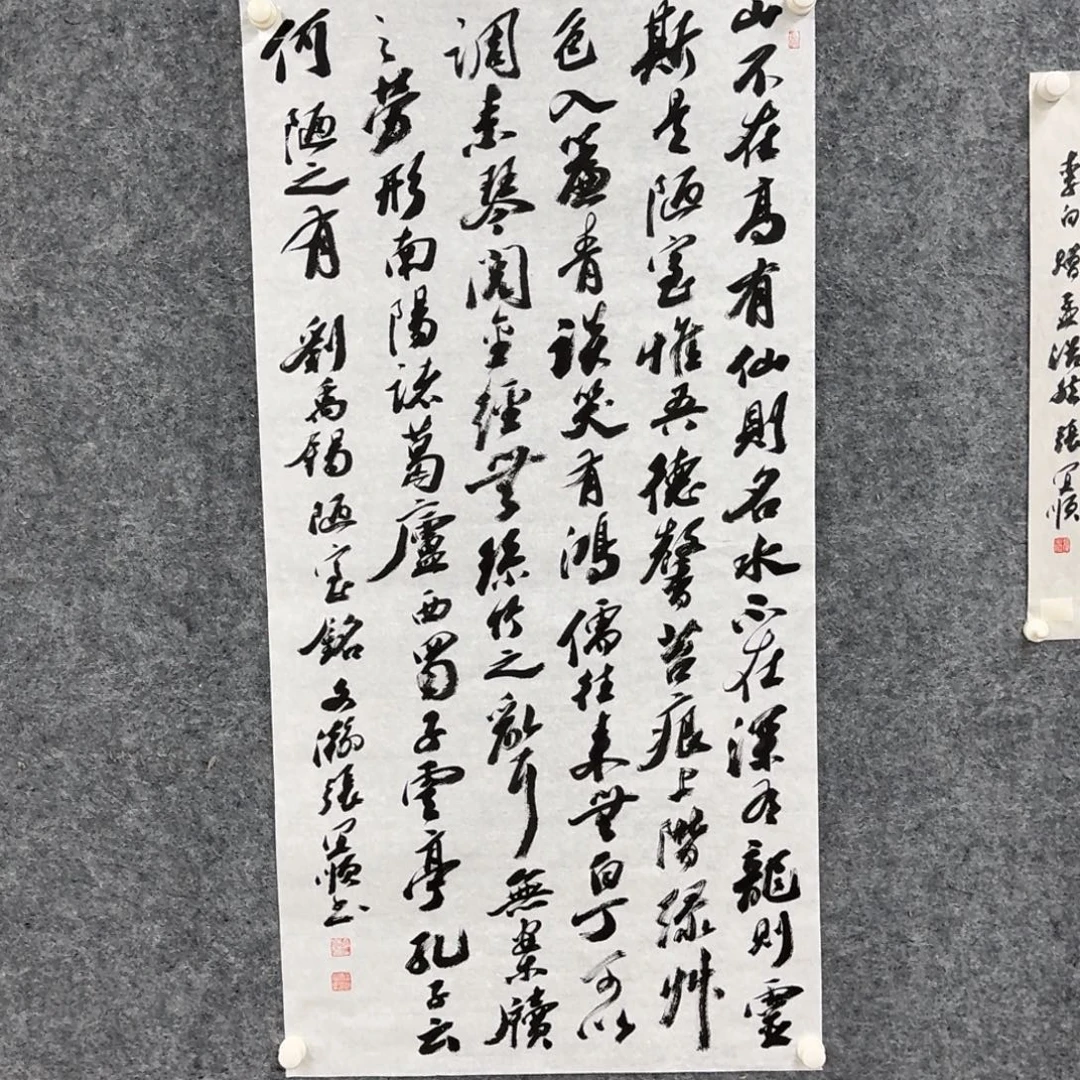 山不在高有仙則名水不在深有龍則靈
斯是陋室惟吾德馨苔痕上階綠艸
色入簾青談笑有鴻儒往來無白丁可以
調素琴閱金經無絲竹之亂耳無案牘
之勞形南陽諸葛廬西蜀子雲亭孔子云
何陋之有 劉禹錫陋室銘 文瀚張順書
李白贈孟浩然張順